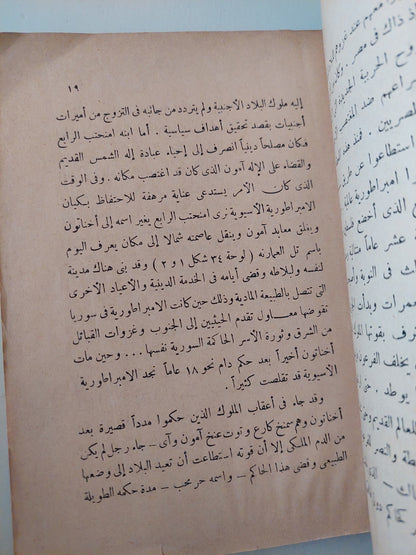 ١٩
إليه ملوك البلاد الأجنبية ولم يتردد من جانبه فى التزوج من أميرات
أجنبيات بقصد تحقيق أهداف سياسية . أما ابنه امنحتب الرابع
فكان مصلحاً دينياً انصرف إلى إحياء عبادة إله الشمس القديم
والقضاء على الإله آمون الذى كان قد اغتصب مكانه . وفى الوقت
الذى كان الأمر يستدعى عناية مرهفة للاحتفاظ بكيان
الامبراطورية الآسيوية نرى امنحتب الرابع يغير اسمه إلى أخناتون
ويغلق معابد آمون وينقل عاصمته شمالا إلى مكان يعرف اليوم
باسم تل العمارنه ( لوحة ٣٤ شكل ١ و ٢ ) وقد بنى هناك مدينة
لنفسه ولبلاطه وقضى أيامه فى الخدمة الدينية والأعياد الأخرى
التى تتصل بالطبيعة المادية وذلك حين كانت الامبراطورية فى سوريا
تقوضها معاول تقدم الحيثيين إلى الجنوب وغزوات القبائل
من الشرق وثورة الأسر الحاكمة السورية نفسها ... وحين مات
أخناتون أخيراً بعد حكم دام نحو ١٨ عاماً نجد الامبراطورية
الآسيوية قد تقلصت كثيراً .
وقد جاء فى أعقاب الملوك الذين حكموا مدداً قصيرة بعد
أخناتون وهم سمنخ كارع وتوت عنخ آمون وآى — جاء رجل لم يكن
من الدم الملكى إلا أن قوته استطاعت أن تعيد البلاد إلى وضعها
الطبيعى وقضى هذا الحاكم — واسمه حر محب — مدة حكمه الطويلة